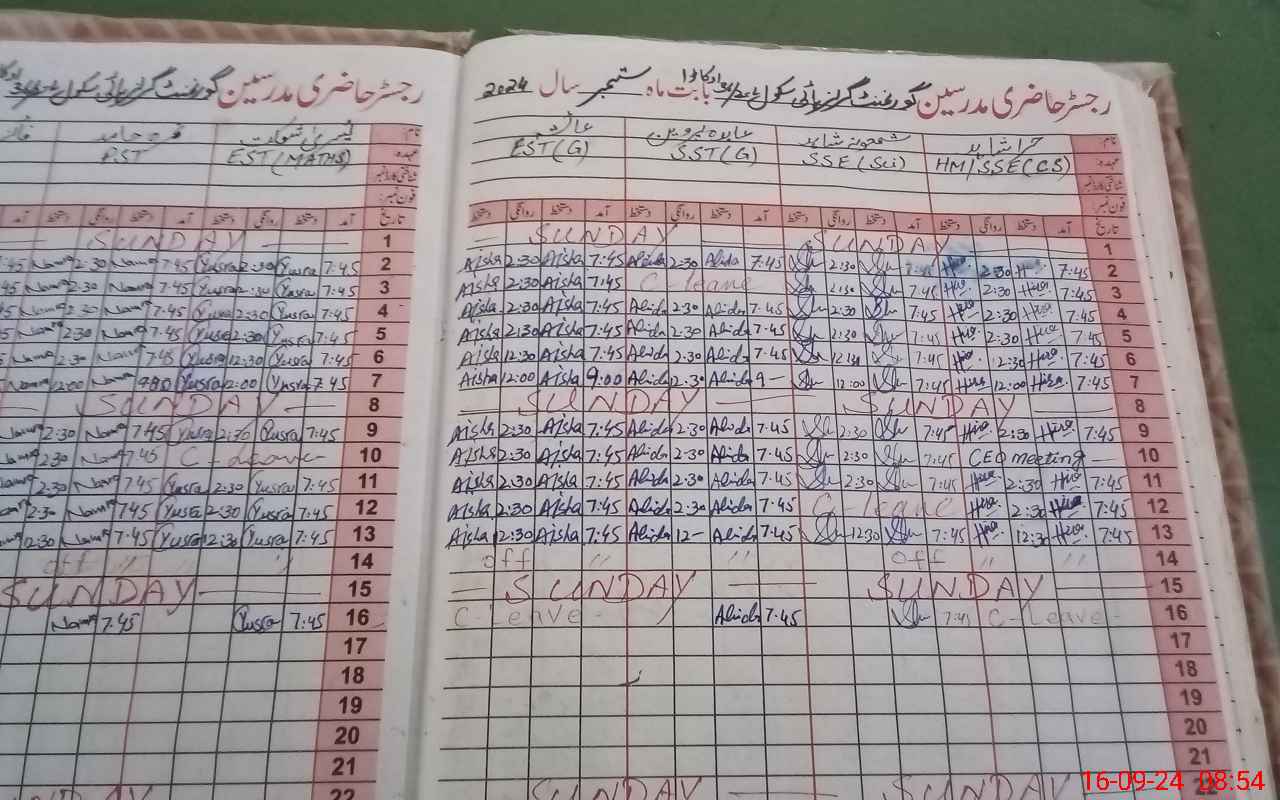 رجسٹر حاضری مدرسین گورنمنٹ گرلز ہائی سکول
نام:
عہدہ: EST (MATHS) PST
شناختی کارڈ نمبر
فون نمبر:
تاریخ آمد دستخط روانگی دستخط آمد دستخط روانگی دستخط آمد
SUNDAY 1
7:45 Nama 2:30 Nama 7:45 Yusra 2:30 Yusra 7:45 2
Nama 2:30 Nama 7:45 Yusra 2:30 Yusra 7:45 3
Nama 2:30 Nama 7:45 Yusra 2:30 Yusra 7:45 4
2:30 Nama 7:45 Yusra 2:30 Yusra 7:45 5
Nama 2:30 Nama 7:45 Yusra 12:30 Yusra 7:45 6
Nama 12:00 Nama Yusra 12:00 Yusra 7:45 7
SUNDAY 8
Nama 2:30 Nama 7:45 Yusra 2:30 Yusra 7:45 9
Nama 2:30 Nama 7:45 C-Leave 10
2:30 Nama 7:45 Yusra 2:30 Yusra 7:45 11
2:30 Nama 7:45 Yusra 2:30 Yusra 7:45 12
12:30 Nama 7:45 Yusra 12:30 Yusra 7:45 13
off " " 14
SUNDAY 15
Nama 7:45 Yusra 7:45 16
17
18
19
20
21
22
رجسٹر حاضری مدرسین گورنمنٹ گرلز ہائی سکول بابت ماہ ستمبر سال 2024
نام: حرا شاہد عابدہ پروین
عہدہ: HM/SSE (CS) SSE (Sci) SST (G) EST (G)
شناختی کارڈ نمبر
فون نمبر:
تاریخ آمد دستخط روانگی دستخط آمد دستخط روانگی دستخط آمد دستخط روانگی دستخط آمد دستخط روانگی دستخط
SUNDAY SUNDAY 1
Aisha 2:30 Aisha 7:45 Abida 2:30 Abida 7:45 2:30 7:45 Hira 2:30 Hira 7:45 2
Aisha 2:30 Aisha 7:45 C-leave 2:30 7:45 Hira 2:30 Hira 7:45 3
Aisha 2:30 Aisha 7:45 Abida 2:30 Abida 7:45 2:30 7:45 Hira 2:30 Hira 7:45 4
Aisha 2:30 Aisha 7:45 Abida 2:30 Abida 7:45 2:30 7:45 Hira 2:30 Hira 7:45 5
Aisha 12:30 Aisha 7:45 Abida 2:30 Abida 7:45 7:45 Hira 12:30 Hira 7:45 6
Aisha 12:00 Aisha 9:00 Abida 12:30 Abida 9- 12:00 7:45 Hira 12:00 Hira 7:45 7
SUNDAY SUNDAY 8
Aisha 2:30 Aisha 7:45 Abida 2:30 Abida 7:45 2:30 7:45 Hira 2:30 Hira 7:45 9
Aisha 2:30 Aisha 7:45 Abida 2:30 Abida 7:45 2:30 7:45 CEO meeting 10
Aisha 2:30 Aisha 7:45 Abida 2:30 Abida 7:45 2:30 7:45 Hira 2:30 Hira 7:45 11
Aisha 2:30 Aisha 7:45 Abida 2:30 Abida 7:45 C-leave Hira 2:30 Hira 7:45 12
Aisha 12:30 Aisha 7:45 Abida 12- Abida 7:45 12:30 7:45 Hira 12:30 Hira 7:45 13
off " " off " 14
SUNDAY SUNDAY 15
C-Leave - Abida 7:45 7:45 C-Leave - 16
17
18
19
20
21
SUNDAY SUNDAY 22
16-09-24 08:54